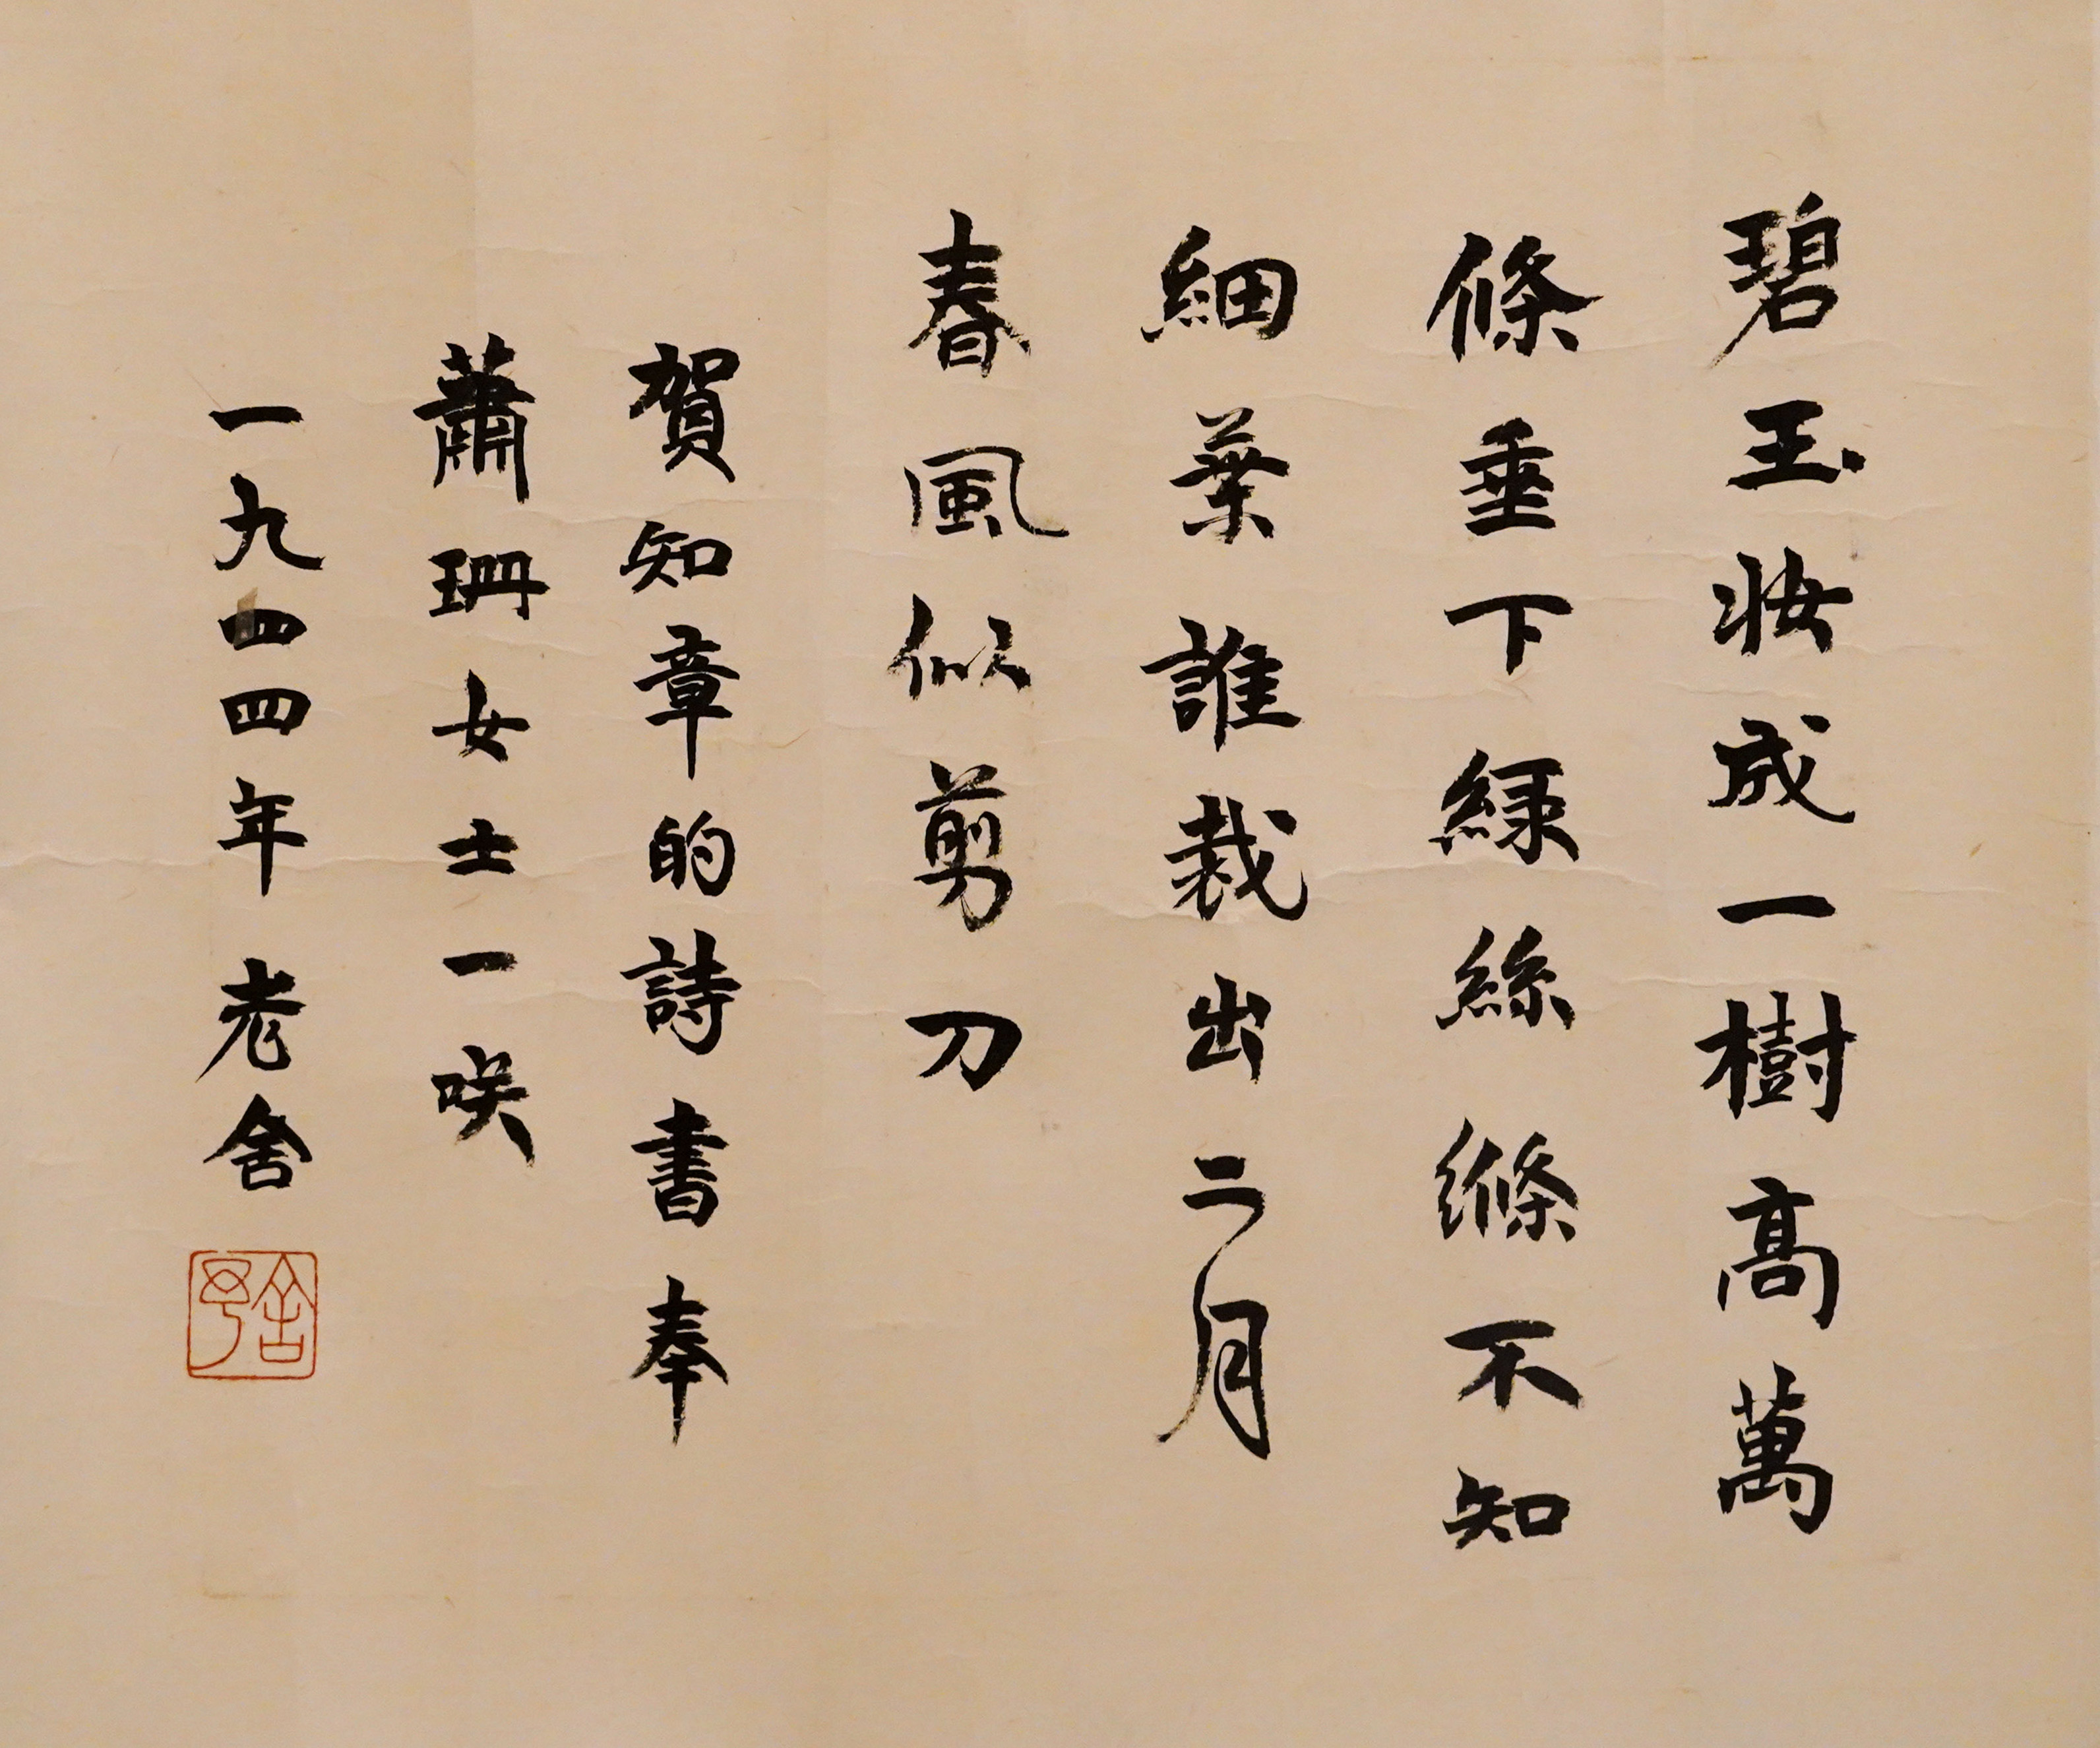 碧玉妝成一樹高萬
條垂下綠絲縧不知
細葉誰裁出二月
春風似剪刀
賀知章的詩書奉
蕭珊女士一咲
一九四四年 老舍